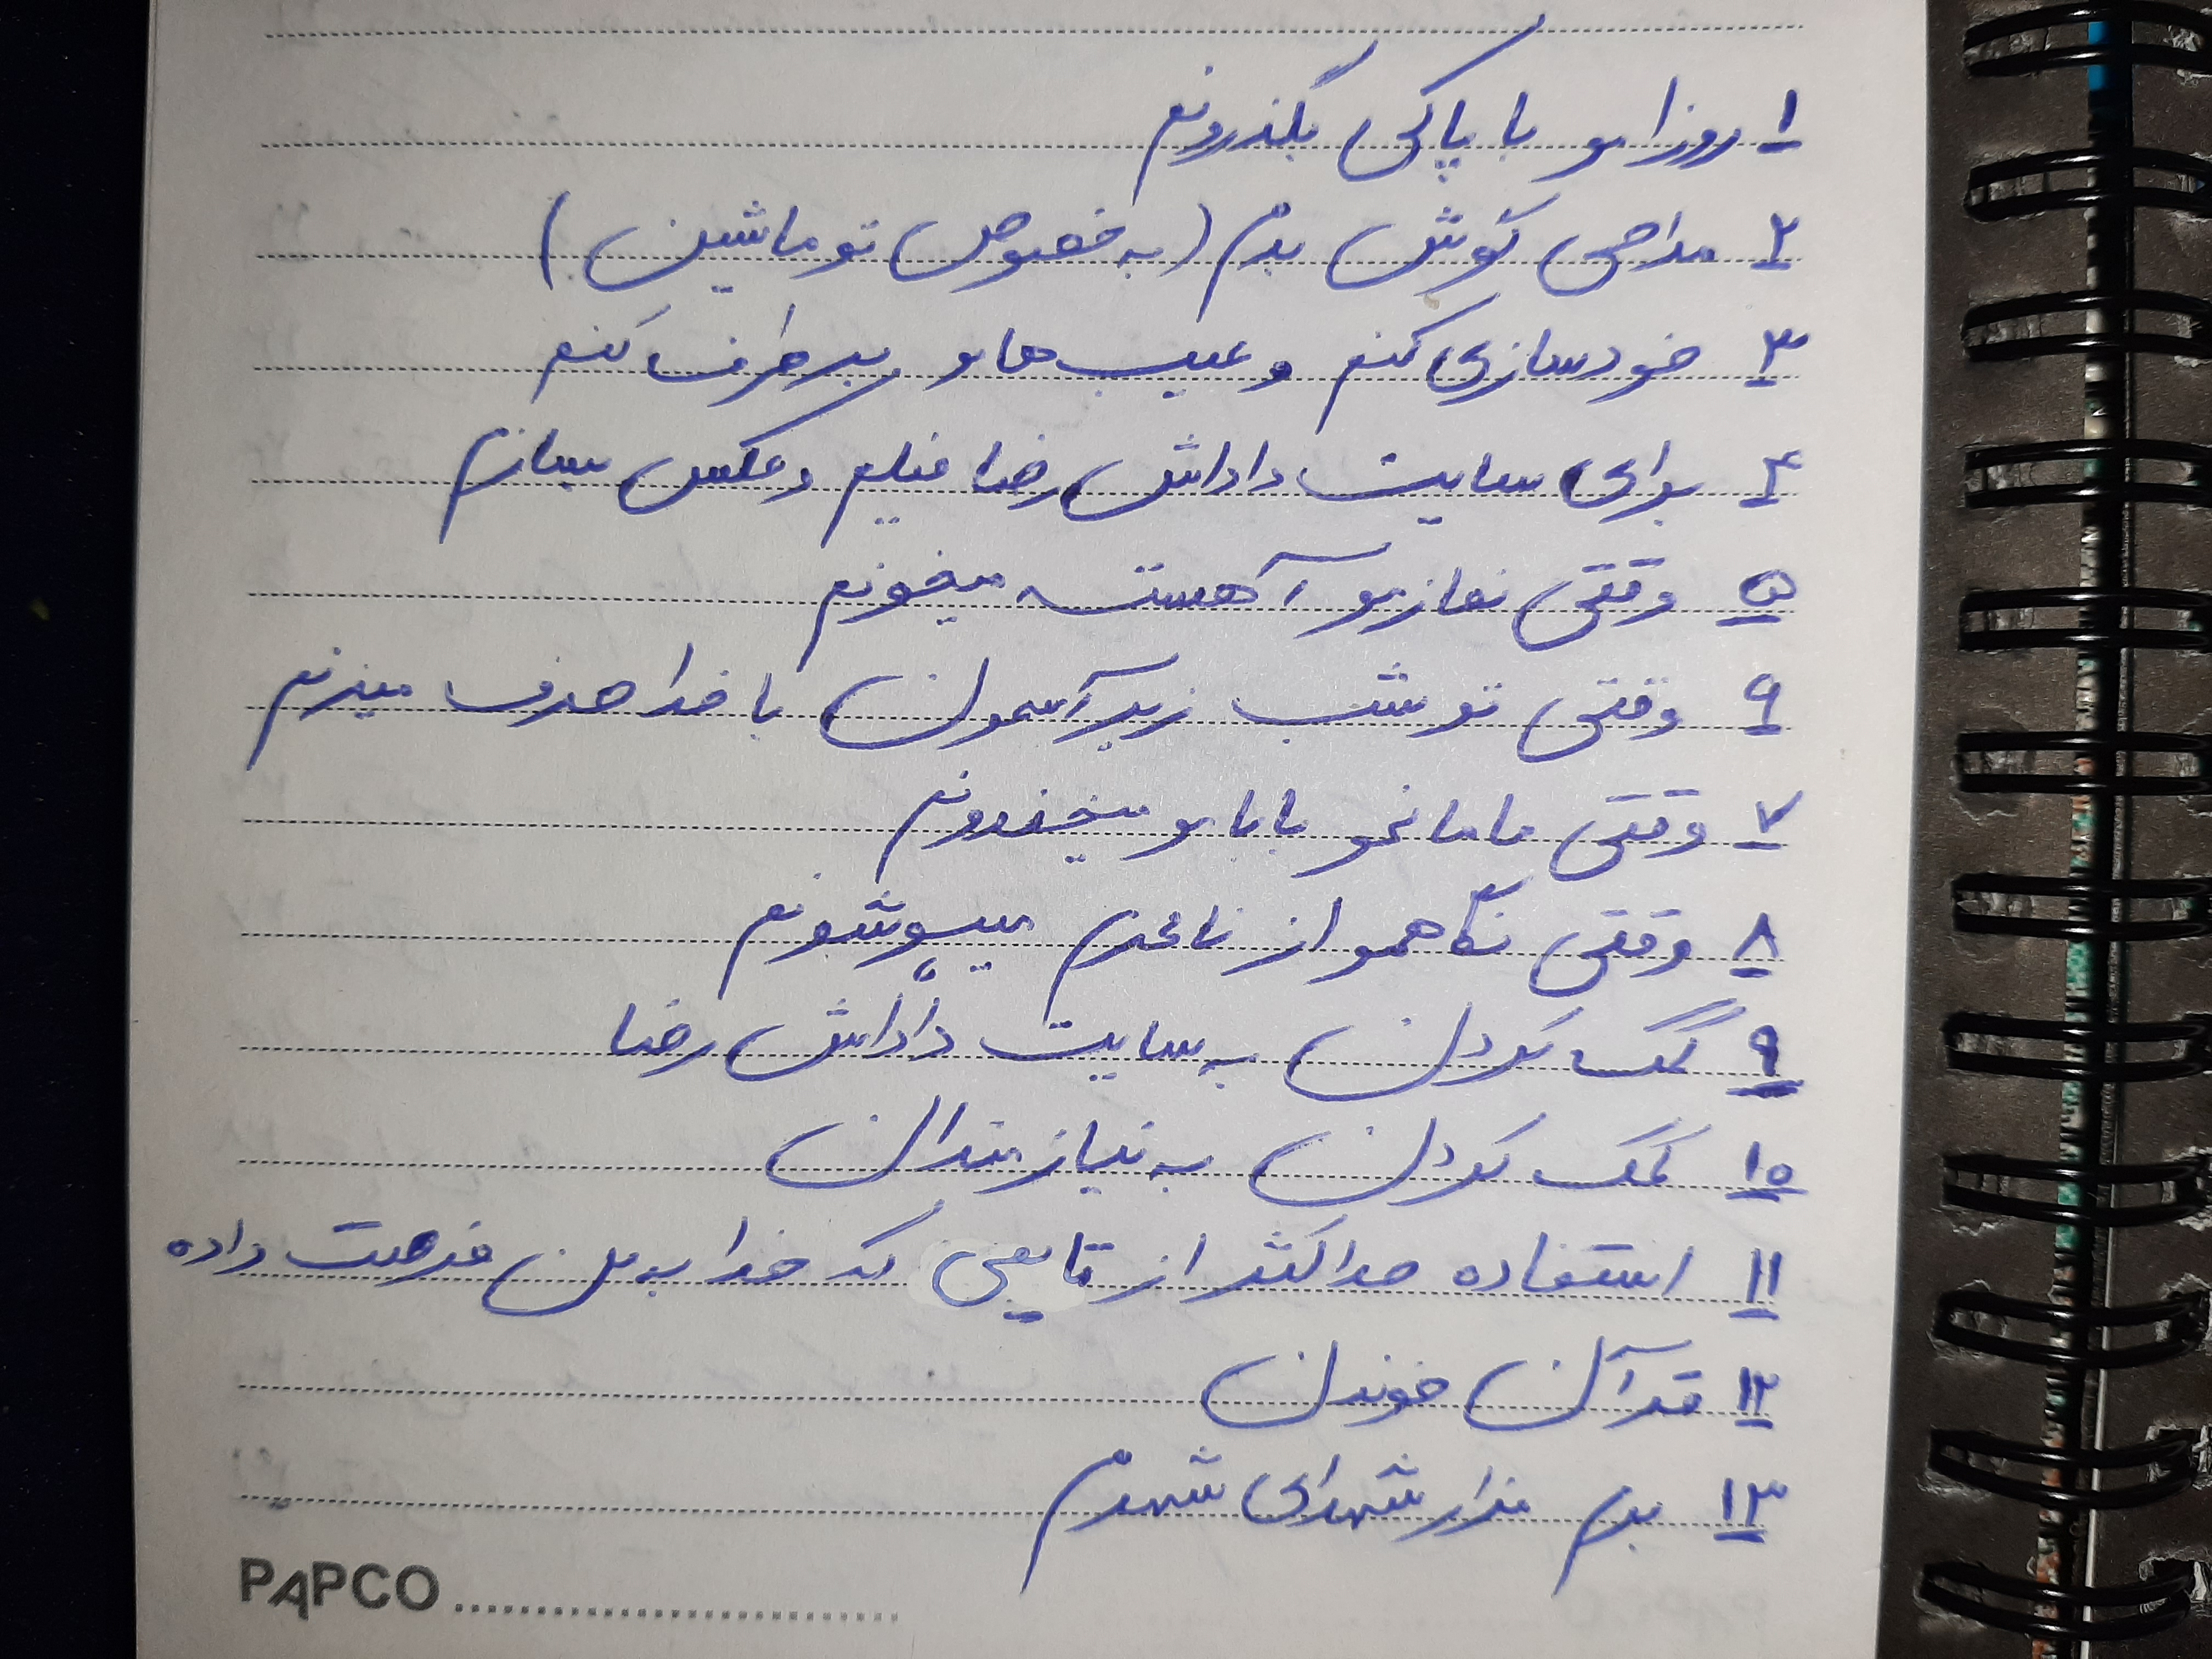 ۱ روزامو با پاکی بگذرونم
۲ مداحی گوش بدم (به خصوص تو ماشین)
۳ خودسازی کنم و عیب هامو برطرف کنم
۴ برای سایت داداش رضا فیلم و عکس بسازم
۵ وقتی نمازمو آهسته میخونم
۶ وقتی تو شب زیر آسمون با خدا حرف میزنم
۷ وقتی مامانمو بابامو میخندونم
۸ وقتی نگاهمو از نامحرم میپوشونم
۹ کمک کردن به سایت داداش رضا
۱۰ کمک کردن به نیازمندان
۱۱ استفاده حداکثر از تایمی که خدا به من فرصت داده
۱۲ قرآن خوندن
۱۳ برم مزار شهدای شهرم
PAPCO